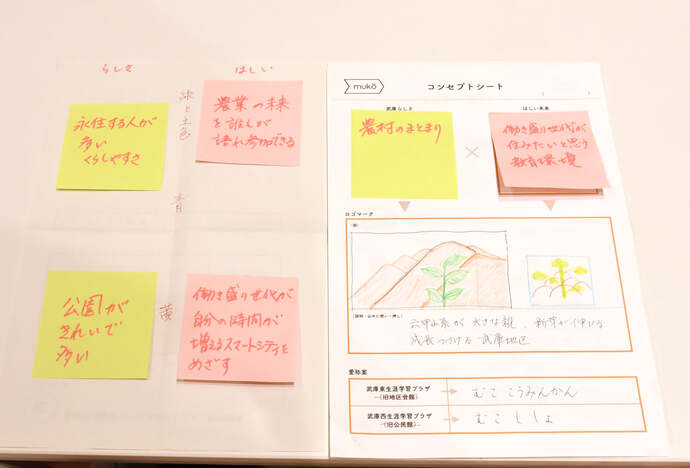 らしさ
ほしい
永住する人が
多い
くらしやすさ
緑と土色
農業の未来
を誰もが
語れ参加できる
青
公園が
きれいで
多い
黄
働き盛り世代が
自分の時間が
増えるスマートシティを
めざす
muko
コンセプトシート
武庫らしさ
ほしい未来
農村のまとまり
×
働き盛り世代が
住みたいと思う
教育環境
ロゴマーク
六甲山系が大きな龍、新芽が伸びる
成長つづける武庫地区
愛称案
武庫東生涯学習プラザ
(旧地区会館)
むこ こうみんかん
武庫西生涯学習プラザ
(旧公民館)
むこ ししょ